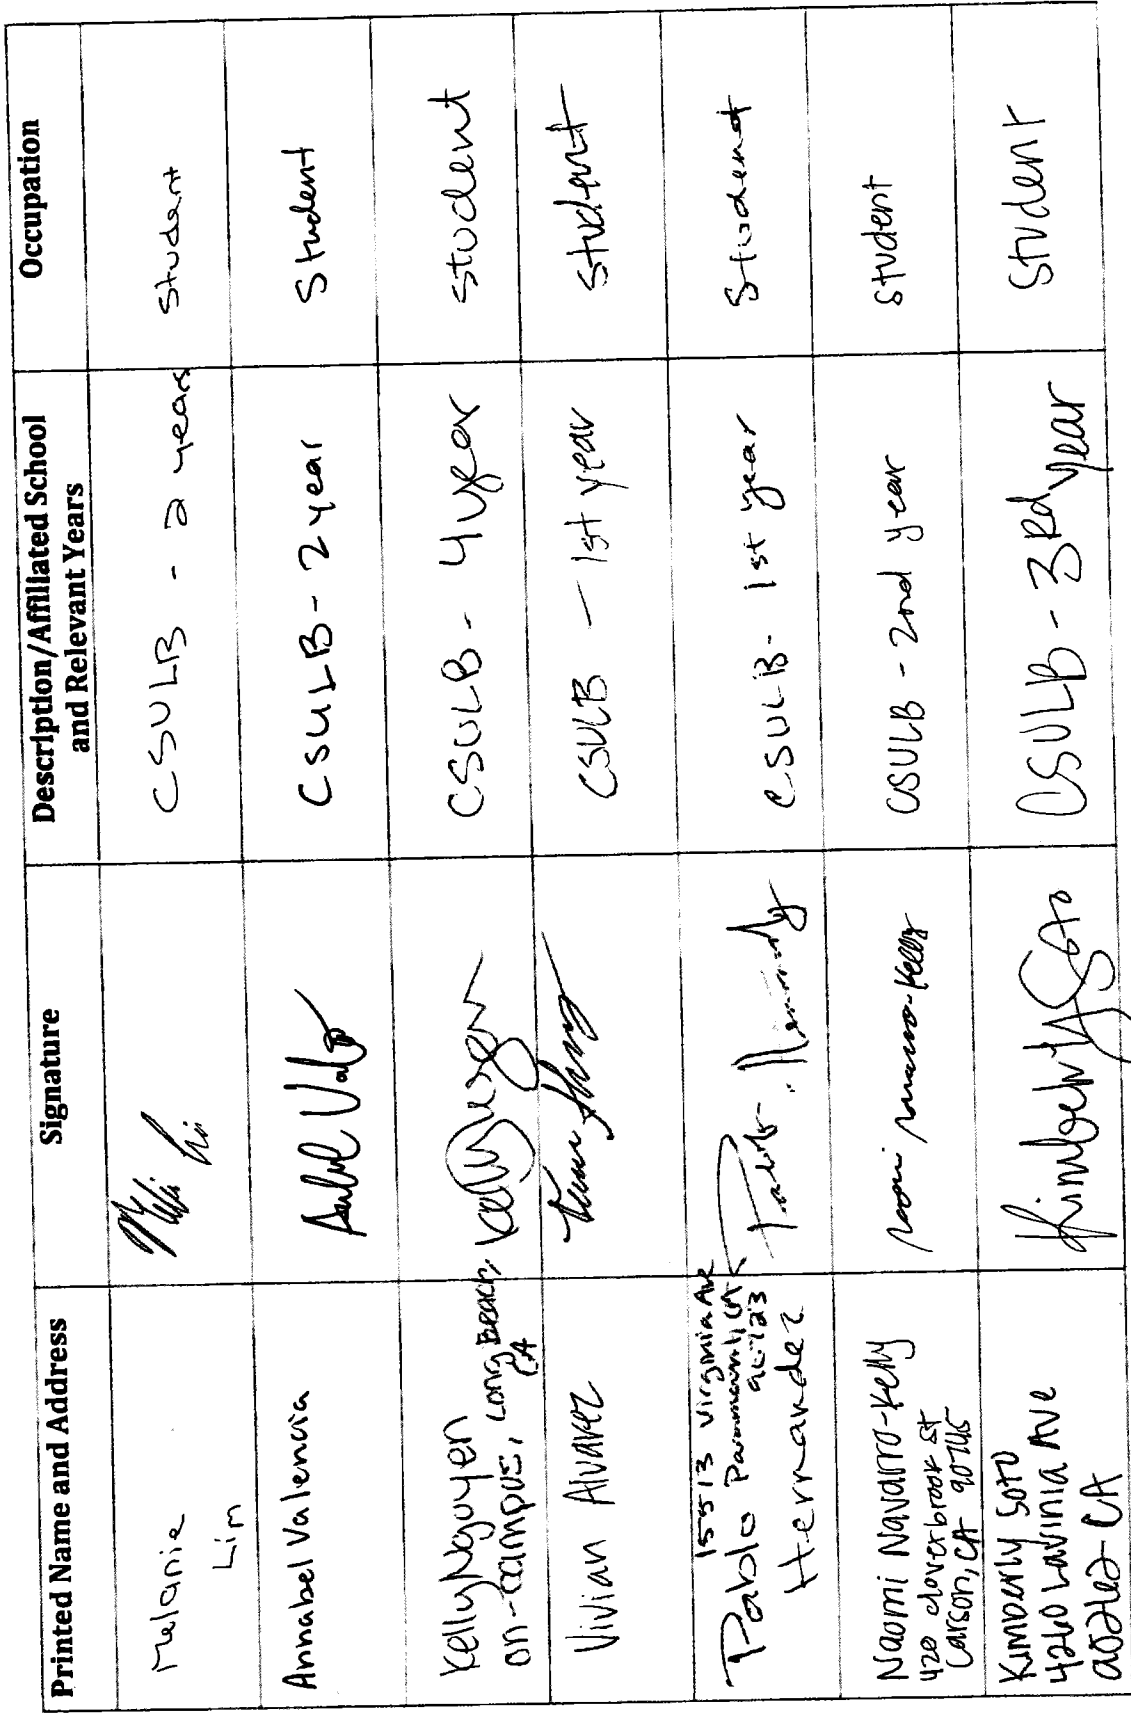 Printed Name and Address
Signature
Description/Affiliated School
and Relevant Years
Occupation
Melanie
Lin
CSULB - 2 years
Student
Annabel Valencia
CSULB - 2 year
Student
Kelly Nguyen
on-campus, Long Beach,
CA
Kelly Nguyen
CSULB - 4 year
student
Vivian Alvarez
CSULB - 1st year
Student
15513 Virginia Ave
Pablo Paramount, CA
Hernandez
CSULB - 1st year
Student
Naomi Navarro-Kelly
420 cloverbrook st
Carson, CA 90745
CSULB - 2nd year
student
Kimberly Soto
4260 Lavinia Ave
90262 CA
Kimberly Soto
CSULB - 3rd year
Student